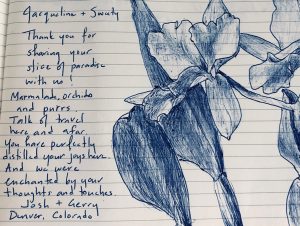 Jacqueline + Swuty
Thank you for
sharing your
slice of paradise
with us!
Marmalade, orchids
and purrs.
Talk of travel
here and afar.
You have perfectly
distilled your joys here.
And we were
enchanted by your
thoughts and touches.
Josh + Gerry
Denver, Colorado